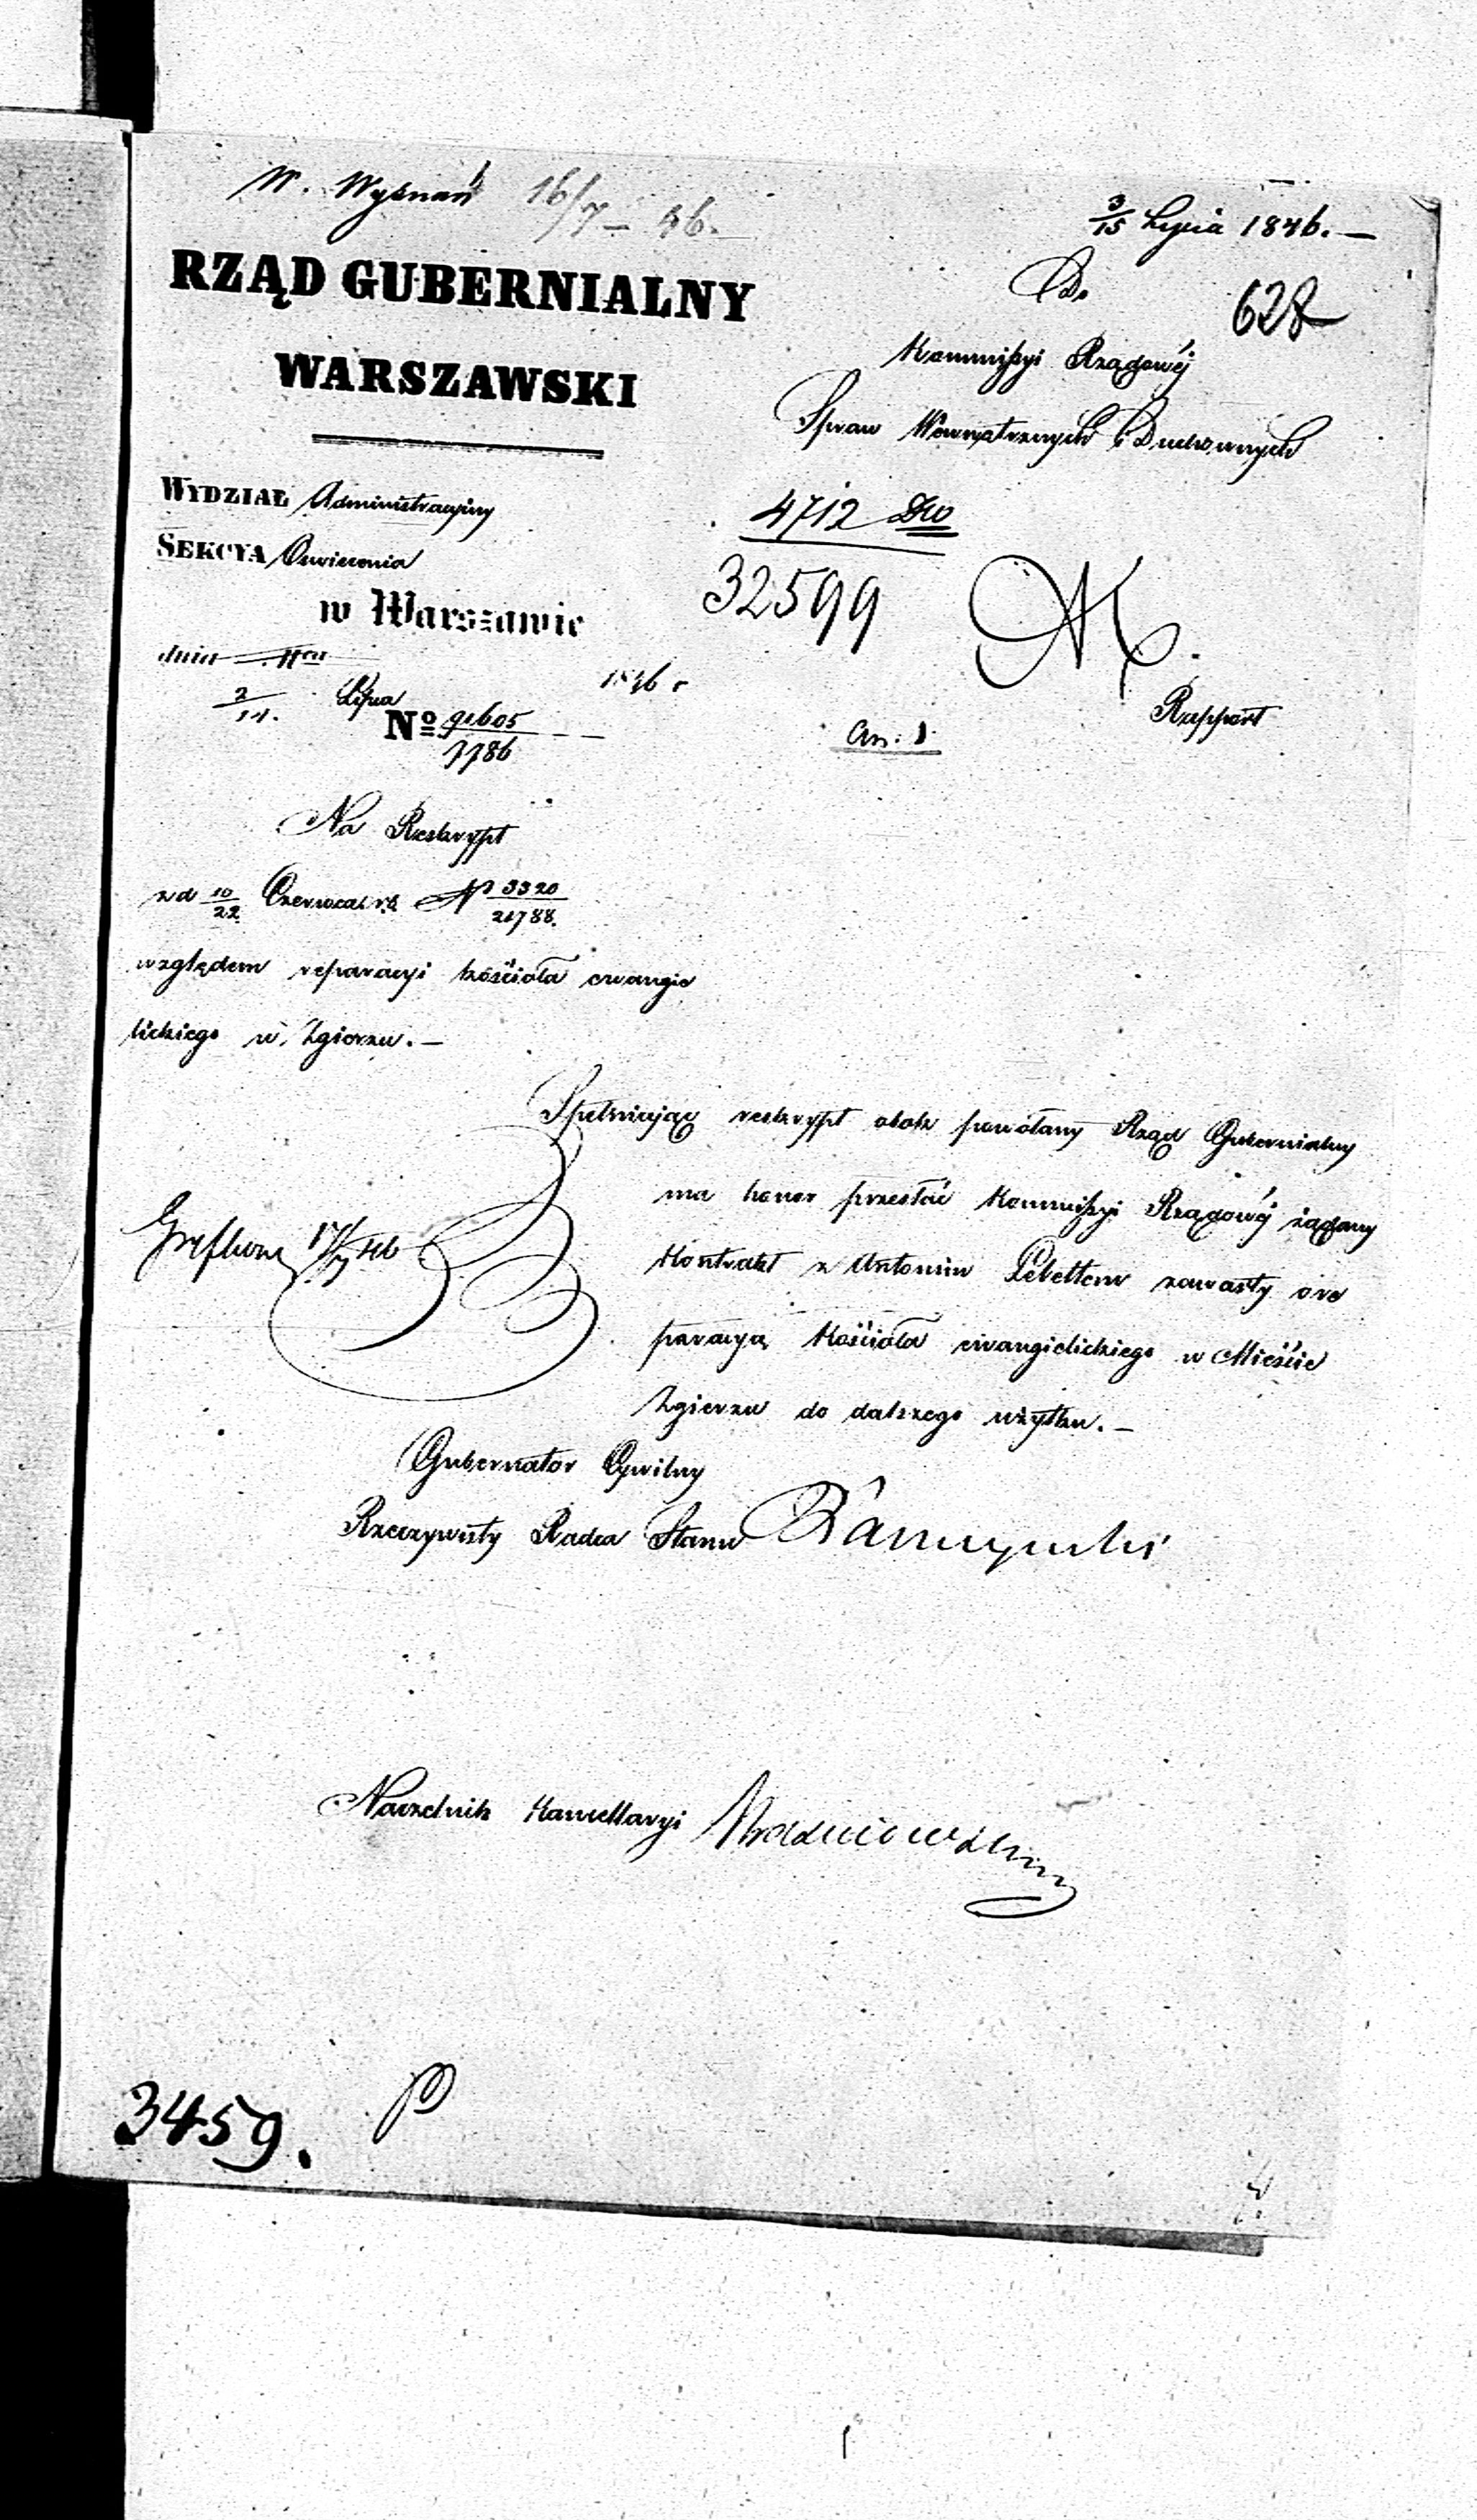 W. Wyznań 16/7 – 46.
3/15 Lipca 1846. —
RZĄD GUBERNIALNY
WARSZAWSKI
Do
628
Kommissyi Rządowéj
Spraw Wewnętrznych i Duchownych
WYDZIAŁ Administracyjny
SEKCYA Oświecenia
w Warszawie
dnia 2/14. Lipca 1846 r
Nº 91605/7786
4712
32599
An: 1.
Rapport
Na Reskrypt
z d 10/22 Czerwca r. b. Nº 3320/21788.
względem reparacyi kościoła ewangie
lickiego w Zgierzu. —
Spełniając reskrypt obok powołany Rząd Gubernialny
ma honor przesłać Kommissyi Rządowéj żądany
Kontrakt z Antonim zawarty o re
paracyą Kościoła ewangielickiego w Mieście
Zgierzu do dalszego użytku. —
17/7 46
Gubernator Cywilny
Rzeczywisty Radca Stanu
Naczelnik Kancellaryi
3459.